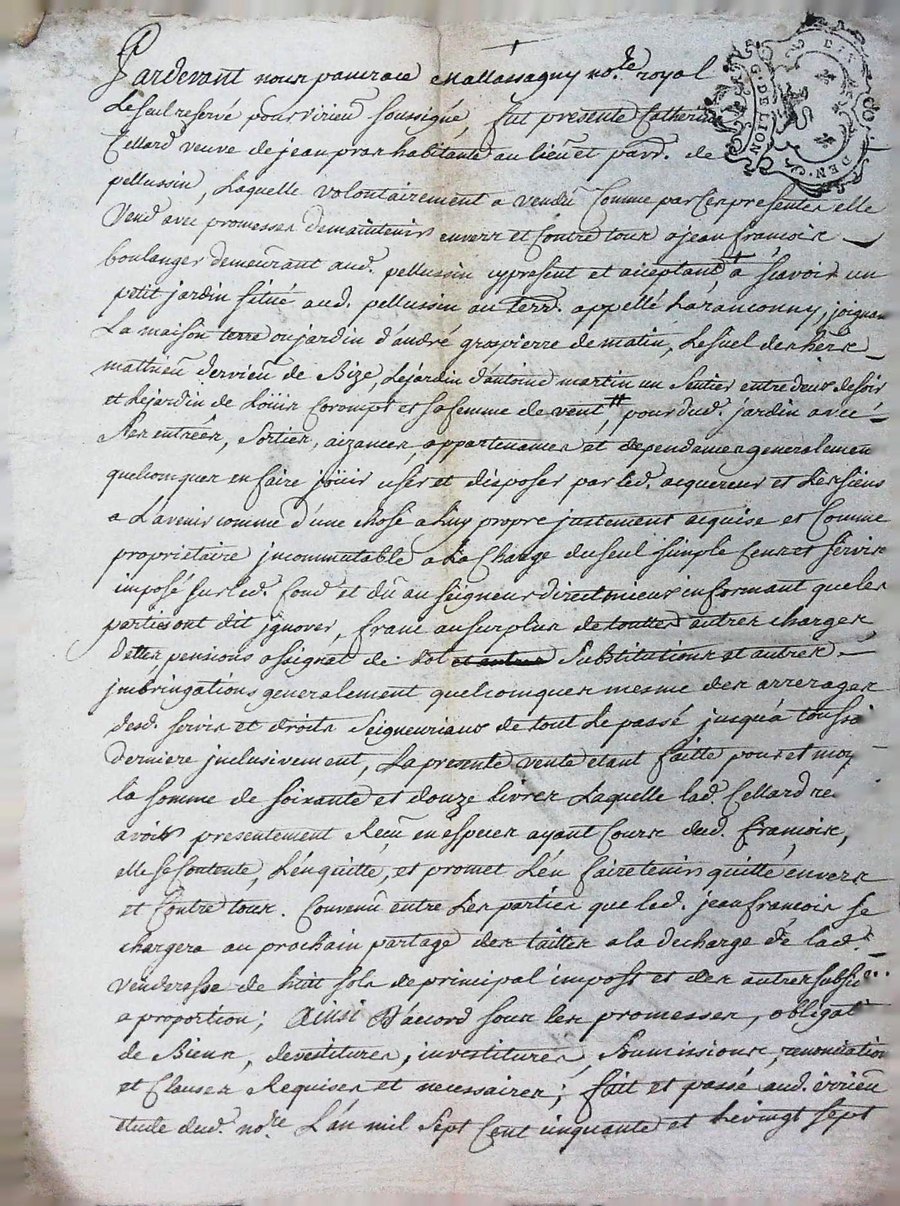 Pardevant nous pancrace Mallassagny no.re royal
Le seul reservé pour virieu soussigné, fut presente Catherine
Cellard veuve de jean pras habitante au lieu et parr. de
pellussin, Laquelle volontairement a vendu Comme par Ces presentes elle
Vend avec promesses de maintenir envers et Contre tous a jean françois
boulanger demeurant aud. pellussin cy present et aceptant, a sçavoir un
petit jardin situé aud. pellussin au terr. appellé, joignant
La maison terre ou jardin d'andré grospierre de matin, Le suel des hers
mathieu dervieu de Bize, Le jardin d'antoine martin un sentier entre deux de soir
et Le jardin de Loüis Corompt et sa femme de vent, pour dud. jardin avec
Ses entrées, sorties, aizances, appartenances et dependances generalement
quelconques en faire joüir user et disposer par led. acquereur et Les siens
a L'avenir comme d'une chose a Luy propre justement acquise et Comme
proprietaire incommutable a La Charge du seul simple Cens et servis
imposé sur led. fond et dû au seigneur direct mieux informant que les
parties ont dit ignorer, franc au surplus de touttes autres charges
dettes pensions assignat de dot et autres Substitutions et autres
imbringations generalement quelconques mesme des arrerages
desd. servis et droits Seigneuriaux de tout Le passé jusqu'a toussaint
derniere inclusivement, La presente vente etant faitte pour et moy
la somme de soixante et douze livres Laquelle lad. Cellard re
avoir presentement Reçu en especes ayant Cours dud. françois,
elle se Contente, L'en quitte, et promet L'en faire tenir quitte envers
et Contre tous. Convenu entre Les parties que led. jean françois se
chargera au prochain partage des tailles a la decharge de lad.
venderesse de huit sols de principal impost et des autres subsi
a proportion; Ainsi D'acord sous les promesses, obligat
de Biens, devestitures, investitures, soumissions, renonciation
et Clauses Requises et necessaires; fait et passé aud. virieu
etude dud. no.re L'an mil sept Cent cinquante et Le vingt sept
G DE LION
DEN.